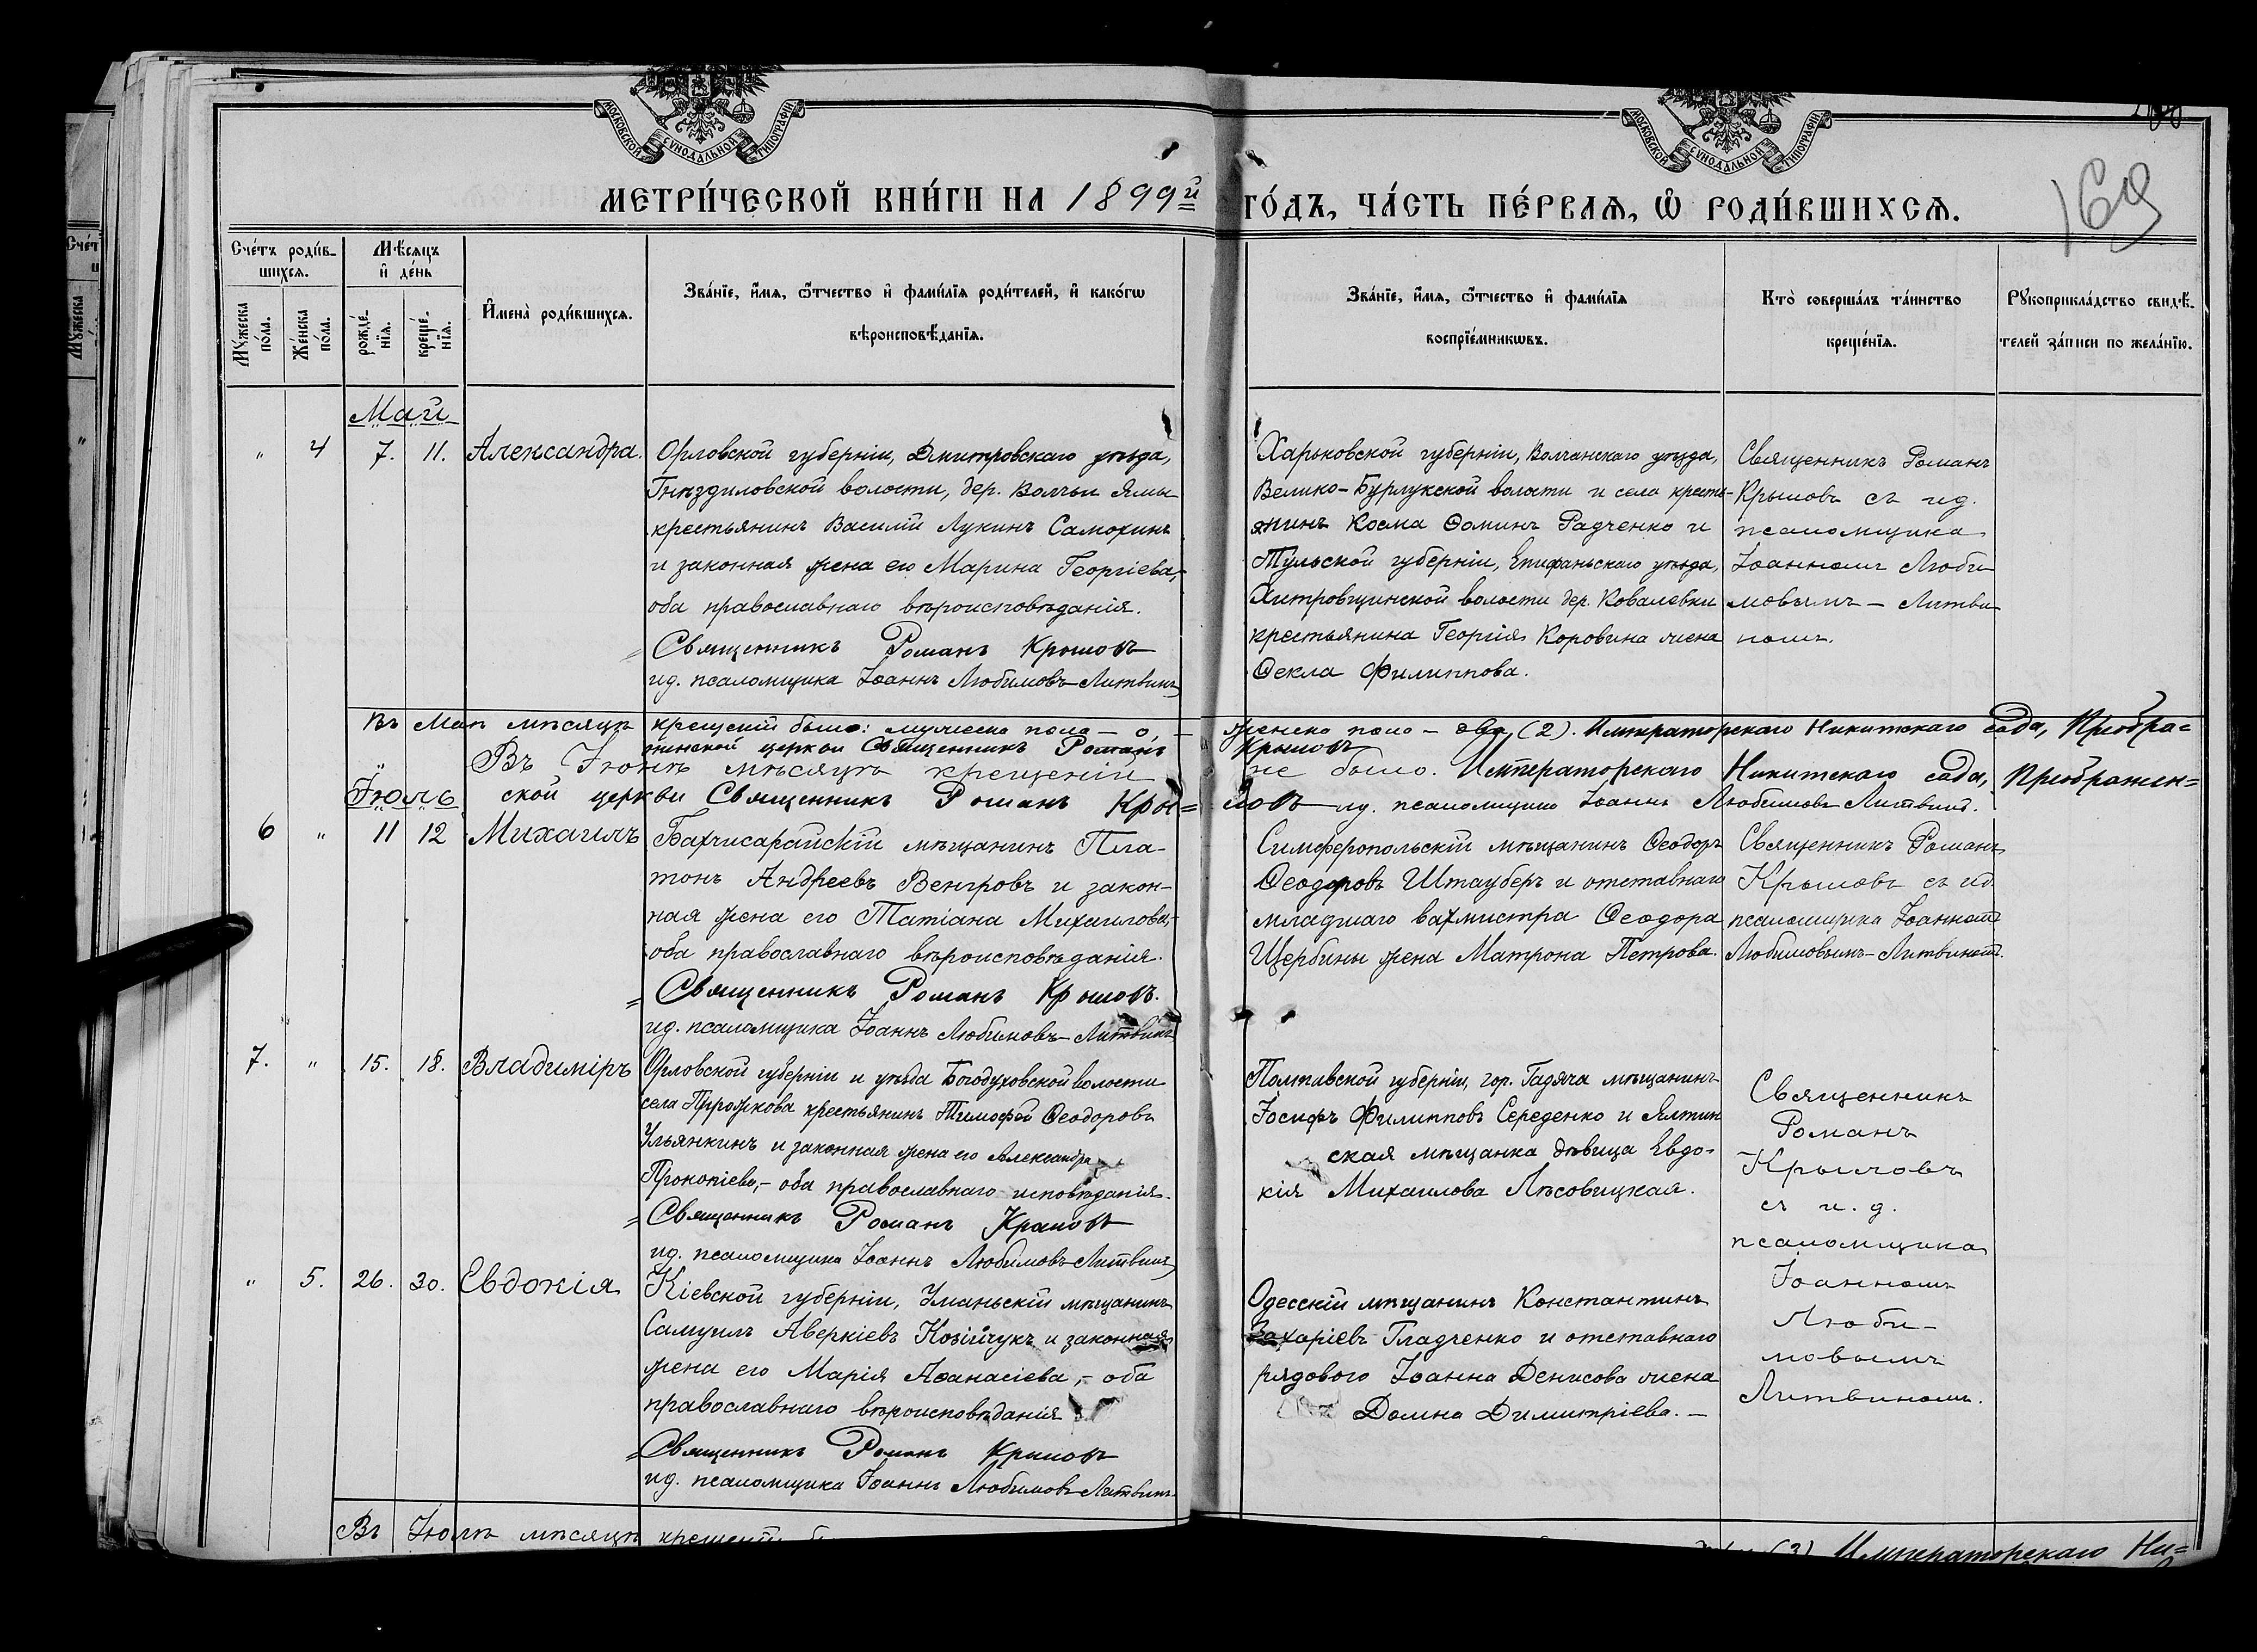 МОСКОВСКОЙ СѴНОДАЛЬНОЙ ТИПОГРАФІИ
МОСКОВСКОЙ СѴНОДАЛЬНОЙ ТИПОГРАФІИ
169
МЕТРИ́ЧЕСКОЙ КНИ́ГИ НА 1899й ГО́ДЪ, ЧА́СТЬ ПЕ́РВАѦ, Ѿ РОДИ́ВШИХСѦ.
Сче́тъ роди́в-
шихсѧ.
Мѣ́сѧцъ
и҆ де́нь
Мꙋ́жеска
по́ла.
Же́нска
по́ла.
рожде́-
нїѧ.
креще́-
нїѧ.
И҆мена̀ роди́вшихсѧ.
Зва́нїе, и҆́мѧ, ѻ҆́тчество и҆ фами́лїѧ роди́телей, и҆ како́гѡ
вѣроисповѣ́данїѧ.
Зва́нїе, и҆́мѧ, ѻ҆́тчество и҆ фами́лїѧ
воспрїе́мникѡвъ.
Кто̀ соверша́лъ та́инство
креще́нїѧ.
Рꙋкоприкла́дство свидѣ́-
телей за́писи по жела́нїю.
Май
" 4 7. 11. Александра.
Орловской губерніи, Дмитровскаго уѣзда,
Гнѣздиловской волости, дер. Волчьи Ямы
крестьянинъ Василій Лукинъ Самохинъ
и законная жена его Марина Георгіева,
оба православнаго вѣроисповѣданія.
Священникъ Романъ Крыловъ
ид. псаломщика Іоаннъ Любимовъ-Литвинъ
Харьковской губерніи, Волчанскаго уѣзда,
Велико-Бурлукской волости и села кресть-
янинъ Косма Ѳоминъ Радченко и
Тульской губерніи, Епифаньскаго уѣзда,
Хитровщинской волости дер. Ковалевки
крестьянина Георгія Коровина жена
Ѳекла Филиппова.
Священникъ Романъ
Крыловъ съ ид.
псаломщика
Іоанномъ Люби
мовымъ - Литви
номъ.
Въ Маѣ мѣсяцѣ крещеній было: мужеска пола - 0, - женска пола - два (2). Императорскаго Никитскаго сада, Преобра=
женской церкви Священникъ Романъ Крыловъ
Въ Іюнѣ мѣсяцѣ крещеній не было. Императорскаго Никитскаго сада, Преображен=
ской церкви Священникъ Романъ Кры= ловъ ид. псаломщика Іоаннъ Любимовъ Литвинъ.
Іюль
6 " 11 12 Михаилъ
Бахчисарайскій мѣщанинъ Пла-
тонъ Андреевъ Венгровъ и закон-
ная жена его Татіана Михаилова,-
оба православнаго вѣроисповѣданія.
Священникъ Романъ Крыловъ.
ид. псаломщика Іоаннъ Любимовъ-Литвинъ
Симферопольскій мѣщанинъ Ѳеодоръ
Ѳеодоровъ Штауберъ и отставнаго
младшаго вахмистра Ѳеодора
Щербины жена Матрона Петрова.
Священникъ Романъ
Крыловъ съ ид.
псаломщика Іоанномъ
Любимовымъ-Литвиномъ.
7. " 15. 18. Владиміръ
Орловской губерніи и уѣзда Богодуховской волости
села Пирожкова крестьянинъ Тимофей Ѳеодоровъ
Ульянкинъ и законная жена его Александра
Прокопіева,- оба православнаго исповѣданія.
Священникъ Романъ Крыловъ
ид. псаломщика Іоаннъ Любимовъ-Литвинъ
Полтавской губерніи, гор. Гадяча мѣщанинъ
Іосифъ Филипповъ Середенко и Ялтин
ская мѣщанка дѣвица Евдо-
кія Михаилова Лѣсовицкая.
Священникъ
Романъ
Крыловъ
съ и. д.
псаломщика
Іоанномъ
Люби-
мовымъ
Литвиномъ.
" 5. 26. 30. Евдокія
Кіевской губерніи, Уманьскій мѣщанинъ
Самуилъ Аверкіевъ Козійчукъ и законная
жена его Марія Аѳанасіева,- оба
православнаго вѣроисповѣданія
Священникъ Романъ Крыловъ
ид. псаломщика Іоаннъ Любимовъ-Литвинъ
Одесскій мѣщанинъ Константинъ
Захаріевъ Гладченко и отставнаго
рядового Іоанна Денисова жена
Домна Димитріева. -
Въ Іюлѣ мѣсяцѣ крещеній (3) Императорскаго Ни=